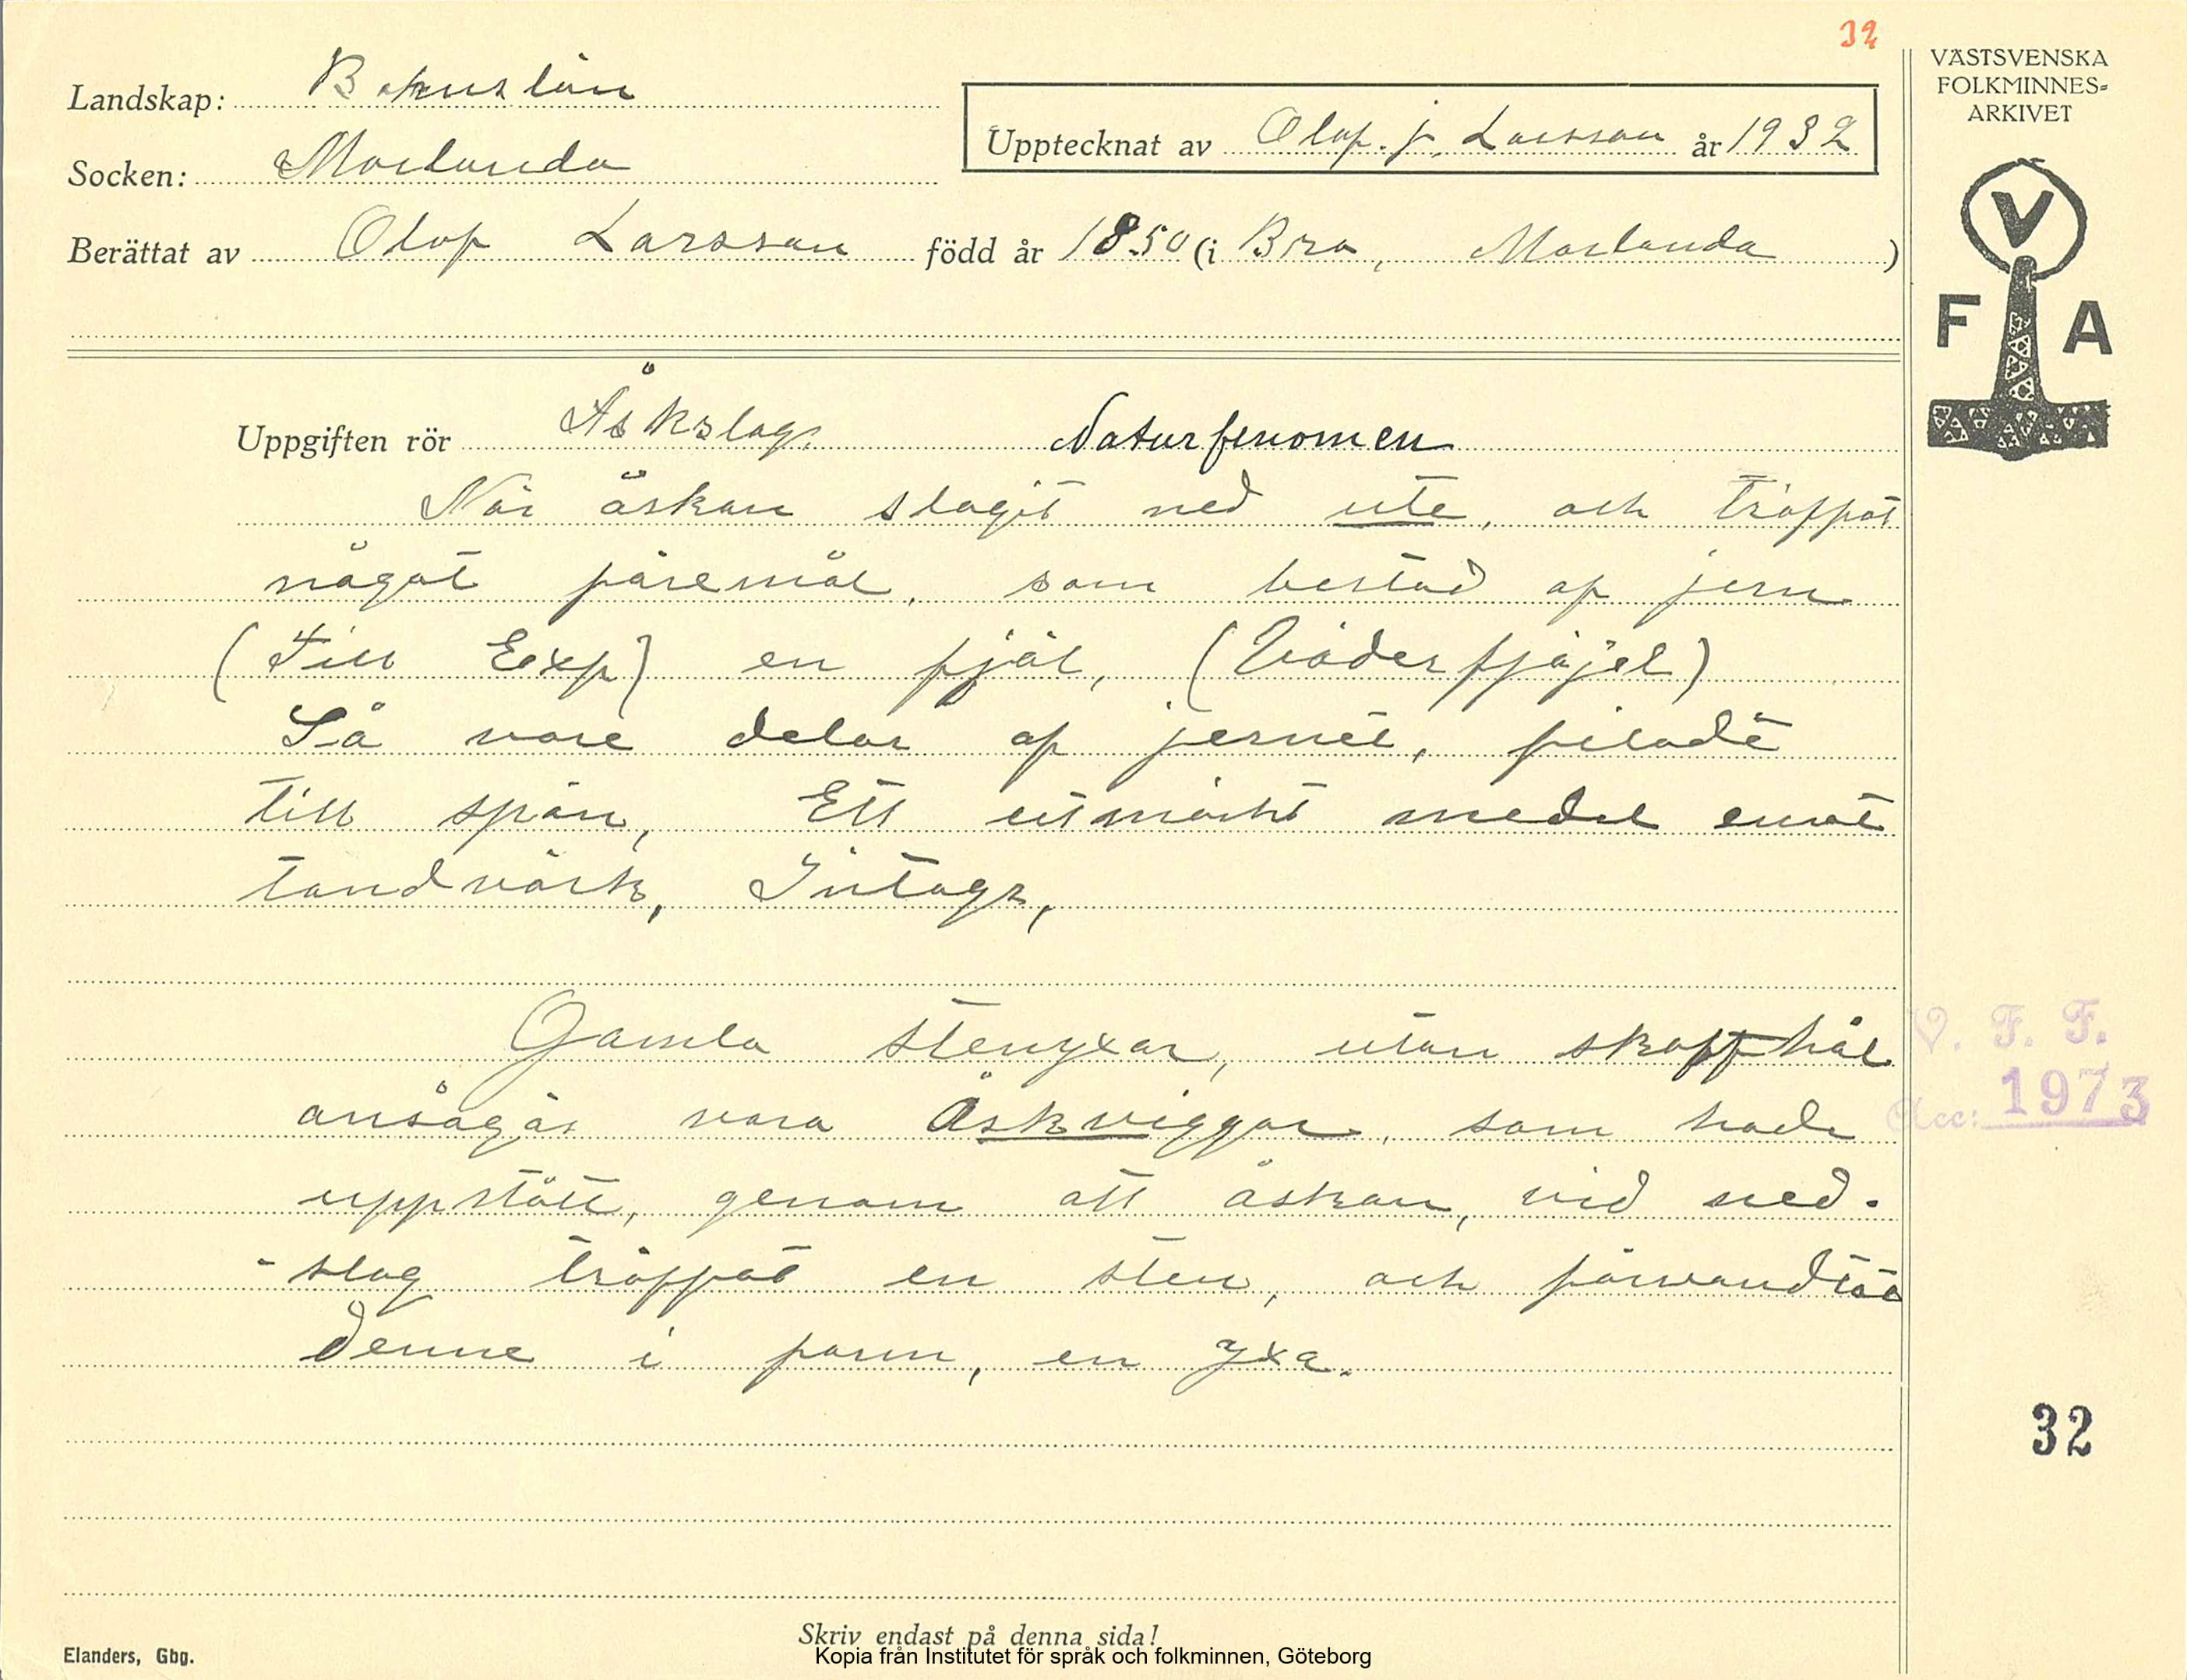 32
VÄSTSVENSKA
FOLKMINNES=
ARKIVET
Landskap: Bohuslän
Upptecknat av Olof. J. Larsson år 1932
Socken: Morlanda
Berättat av Olof Larsson född år 1850 (i Bro, Morlanda)
V
F A
Uppgiften rör Åskslag. Naturfenomen
När åskan slagit ned ute, och träffat
något föremål, som bestod af jern
(Till Exp) en fjäl, (Väderfjöjel)
Så vore delar af jernet, filadt
till spån, Ett utmärkt medel emot
tandvärk, Intogs,
Gamla stenyxor, utan skafthål
ansågos vara Åskviggar, som hade
uppstått, genom att åskan, vid ned-
-slag träffat en sten, och förvandlat
denne i form, en yxa.
V. F. F.
Acc: 1973
32
Skriv endast på denna sida!
Elanders, Gbg.
Kopia från Institutet för språk och folkminnen, Göteborg